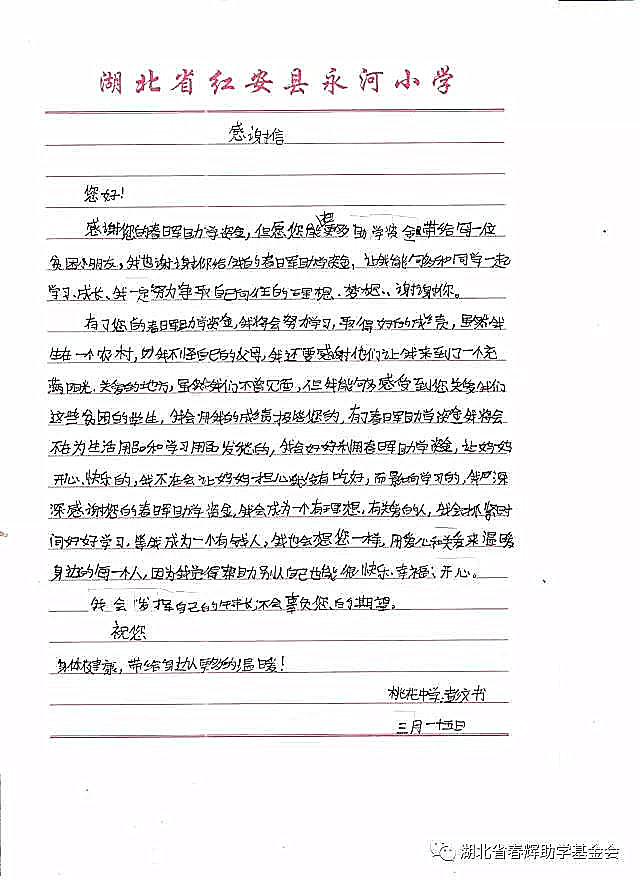 湖北省红安县永河小学
感谢信
您好!
感谢您的春晖助学资金,但愿您能把更多助学资金带给每一位
贫困小朋友,我也谢谢你给我的春晖助学资金,让我能够和同学一起
学习、成长、我一定努力争取自己向往的理想、梦想、谢谢你。
有了您的春晖助学资金,我将会努力学习,取得好的成绩,虽然我
生在一个农村,但我不怪自己的父母,我还要感谢他们让我来到了一个充
满阳光、关爱的地方,虽然我们不曾见面,但我能够感受到您关爱我们
这些贫困的学生,我会用我的成绩报答您的,有了春晖助学资金我将会
不在为生活用品和学习用品发愁的,我会好好利用春晖助学资金,让妈妈
开心、快乐的,我不在会让妈妈担心我没有吃好,而影响学习的,我深
深感谢您的春晖助学资金,我会成为一个有理想,有关爱的人,我会抓紧时
间好好学习,等我成为一个有钱人,我也会想您一样,用爱心和关爱来温暖
身边的每一个人,因为我觉得帮助别人自己也能很快乐、幸福、开心。
我会发挥自己的特长,不会辜负您的期望。
祝您
身体健康,带给身边人更多的温暖!
桃花中学:文书
三月一十五日
湖北省春辉助学基金会